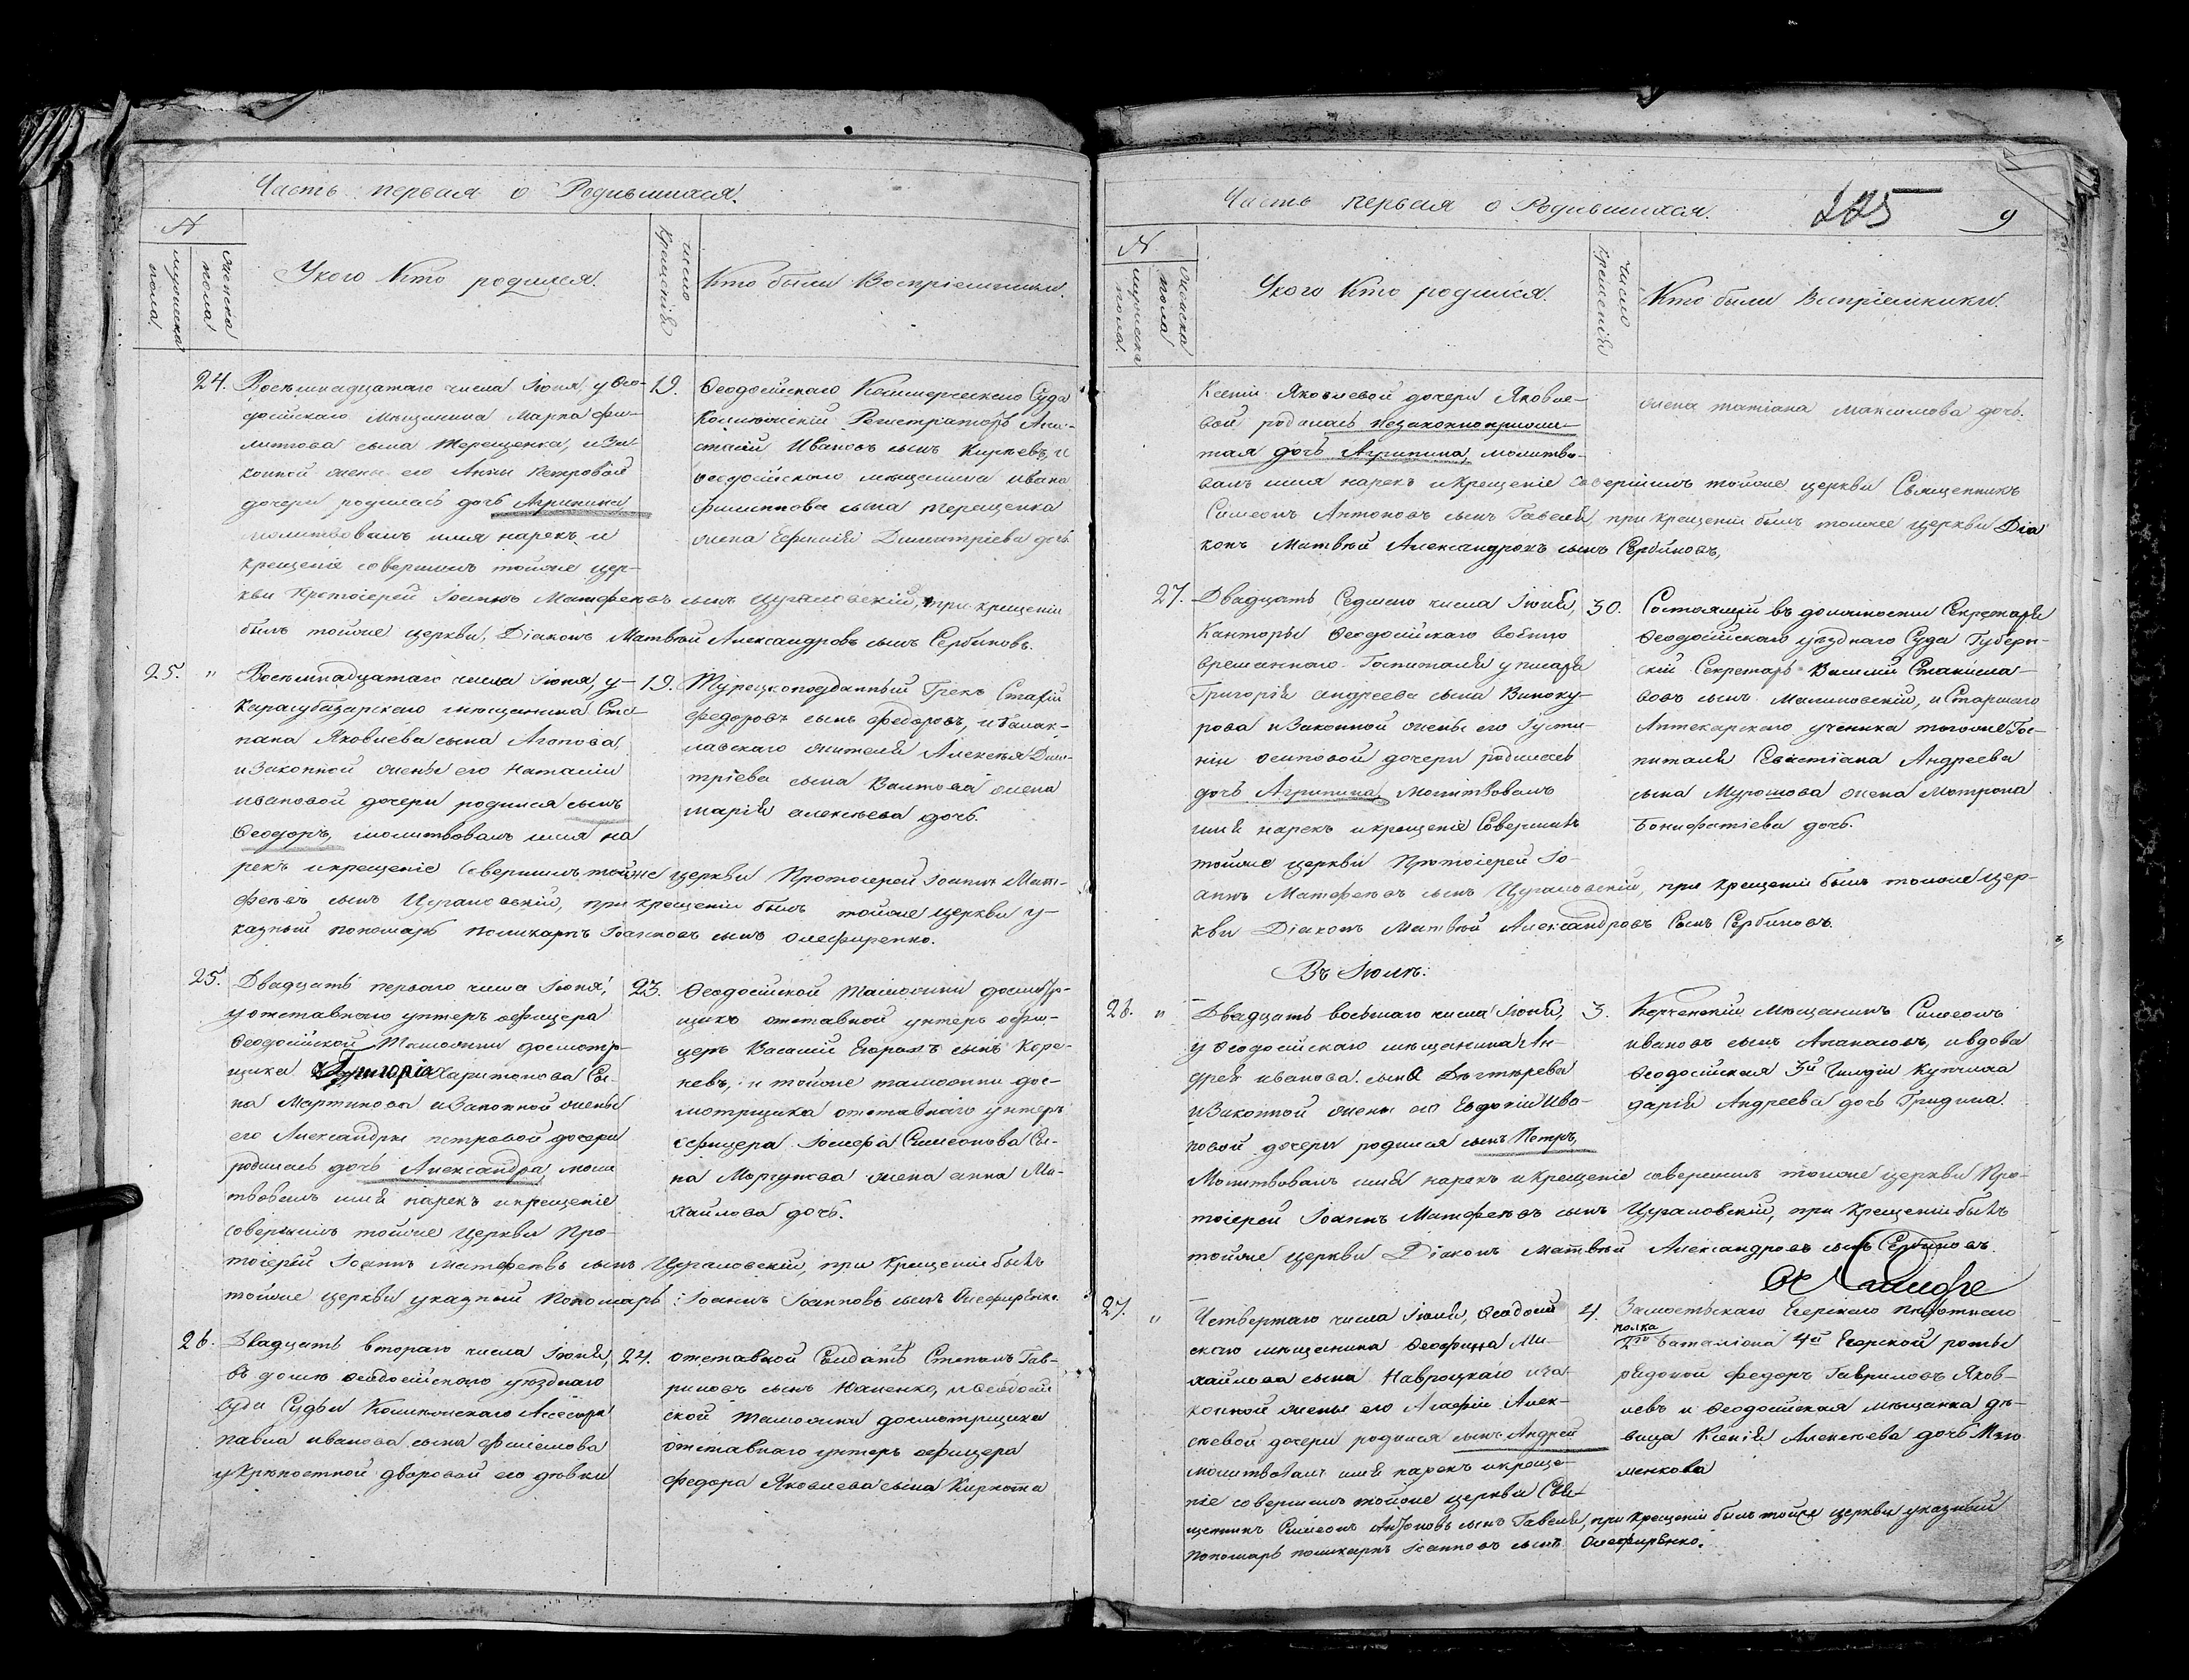 Часть первая о Родившихся.
№
мужеска пола.
женска пола
У кого кто родился.
число крещенія
Кто были Воспріемники.
24.
Восемнадцатаго числа Іюня, у Ѳео-
досійскаго мѣщанина Марка Фи-
липова сына Терещенка, и за-
конной жены его Анны Петровой
дочери родилась дочь Агрипина
молитвовалъ имя нарекъ и
крещеніе совершилъ тойже цер-
кви Протоіерей Іоаннъ Матфеевъ сынъ Цурановскій, при крещеніи
былъ тойже церкви Діаконъ Матвѣй Александровъ сынъ Сербиновъ.
19.
Ѳеодосійскаго Коммерческаго Суда
Колежскій Регистраторъ Ана-
стасій Ивановъ сынъ Киреевъ, и
Ѳеодосійскаго мѣщанина Ивана
Филиппова сына Терещенка
жена Ефимія Димитріева дочь
25. "
Восемнадцатаго числа Іюня, у
Карасубазарскаго мѣщанина Сте-
пана Яковлева сына Агопова,
и законной жены его Наталіи
Ивановой дочери родился сынъ
Ѳеодоръ, молитвовалъ имя на
рекъ и крещеніе совершилъ тойже церкви Протоіерей Іоаннъ Мат-
феевъ сынъ Цурановскій, при крещеніи былъ тойже церкви у-
казный пономарь Поликарпъ Іоанновъ сынъ Олефиренко.
19.
Турецкоподданный Грекъ Стафій
Федоровъ сынъ Федоровъ, и Балак-
лавскаго жителя Алексѣя Дими-
тріева сына жена
Марія Алексѣева дочь.
25.
Двадцать перваго числа Іюня,
у отставнаго унтеръ офицера
Ѳеодосійской Таможни досмотр-
щика Григорія Харитонова Сы-
на Мартинова и законной жены
его Александры Петровой дочери
родилась дочь Александра, моли
твовалъ имя нарекъ и крещеніе
совершилъ тойже Церкви Про-
тоіерей Іоаннъ Матфеевъ сынъ Цурановскій, при Крещеніи былъ
тойже церкви указный Пономарь Іоаннъ Іоанновъ сынъ Олефиренко.
23.
Ѳеодосійской Таможни досмотр-
щикъ отставной унтеръ офи-
церъ Василій Егоровъ сынъ Коре-
невъ, и тойже таможни дос-
мотрщика отставнаго унтеръ
офицера Іосифа Симеонова Сы-
на Моргунова жена Анна Ми-
хайлова дочь.
26.
Двадцать втораго числа Іюня,
въ домѣ Ѳеодосійскаго уѣзднаго
Суда Судьи Колежскаго Асесора
Павла Иванова сына
у крѣпостной дворовой его дѣвки
24.
отставной Солдатъ Степанъ Гав-
риловъ сынъ Юхненко, и Ѳеодосій
ской Таможни досмотрщика
отставнаго унтеръ офицера
Федора Яковлева сына
Часть первая о Родившихся.
9
№
мужеска пола.
женска пола
У кого кто родился.
число крещенія
Кто были Воспріемники.
Ксеніи Яковлевой дочери Яковле-
вой родилась незаконноприжи-
тая дочь Агрипина, молитво-
валъ имя нарекъ и крещеніе совершилъ тойже церкви Священникъ
Симеонъ Антоновъ сынъ Гавель, при крещеніи былъ тойже церкви Діа
конъ Матвѣй Александровъ сынъ Сербиновъ,
жена Татіана Максимова дочь.
27.
Двадцать Седмаго числа Іюня,
Канторы Ѳеодосійскаго военно
временнаго Госпиталя у писаря
Григорія Андреева сына Виноку-
рова и законной жены его Іусти-
ніи Осиповой дочери родилась
дочь Агрипина молитвовалъ
имя нарекъ и крещеніе Совершилъ
тойже церкви Протоіерей Іо-
аннъ Матфеевъ сынъ Цурановскій, при крещеніи былъ тойже Цер-
кви Діаконъ Матвѣй Александровъ Сынъ Сербиновъ.
30.
Состоящій въ должности Секретаря
Ѳеодосійскаго уѣзднаго Суда Губерн-
скій Секретарь Василій Станисла-
вовъ сынъ Малиновскій, и Старшаго
Аптекарскаго ученика тогоже Гос-
питаля Севастіана Андреева
сына жена Матрона
Бонифатіева дочь.
Въ Іюлѣ:
28. "
Двадцать восьмаго числа Іюня,
у Ѳеодосійскаго мѣщанина Ан-
дрея Иванова сына Дегтярева
и законной жены его Евдокіи Ива-
новой дочери родился сынъ Петръ,
Молитвовалъ имя нарекъ и крещеніе совершилъ тойже церкви Про-
тоіерей Іоаннъ Матфеевъ сынъ Цурановскій, при Крещеніи былъ
тойже церкви Діаконъ Матвѣй Александровъ сынъ Сербиновъ.
3.
Керченскій Мѣщанинъ Симеонъ
Ивановъ сынъ Ананьевъ, и вдова
Ѳеодосійская 3й Гильдіи Купчиха
Дарія Андреева дочь Гридина.
27. "
Четвертаго числа Іюля, Ѳеодосій
скаго мѣщанина Ми-
хайлова сына Навроцкаго и за-
конной жены его Агафіи Алек-
сѣевой дочери родился сынъ Андрей
молитвовалъ имя нарекъ и креще-
ніе совершилъ тойже церкви Свя-
щенникъ Симеонъ Антоновъ сынъ Гавель, при крещеніи былъ тойже церкви указный
Пономарь Поликарпъ Іоанновъ сынъ Олефиренко.
4.
Замостьскаго Егерскаго Пѣхотнаго
полка
баталіона 4й Егерской роты
рядовой Федоръ Гавриловъ Яков-
левъ и Ѳеодосійская мѣщанка дѣ-
вица Ксенія Алексѣева дочь